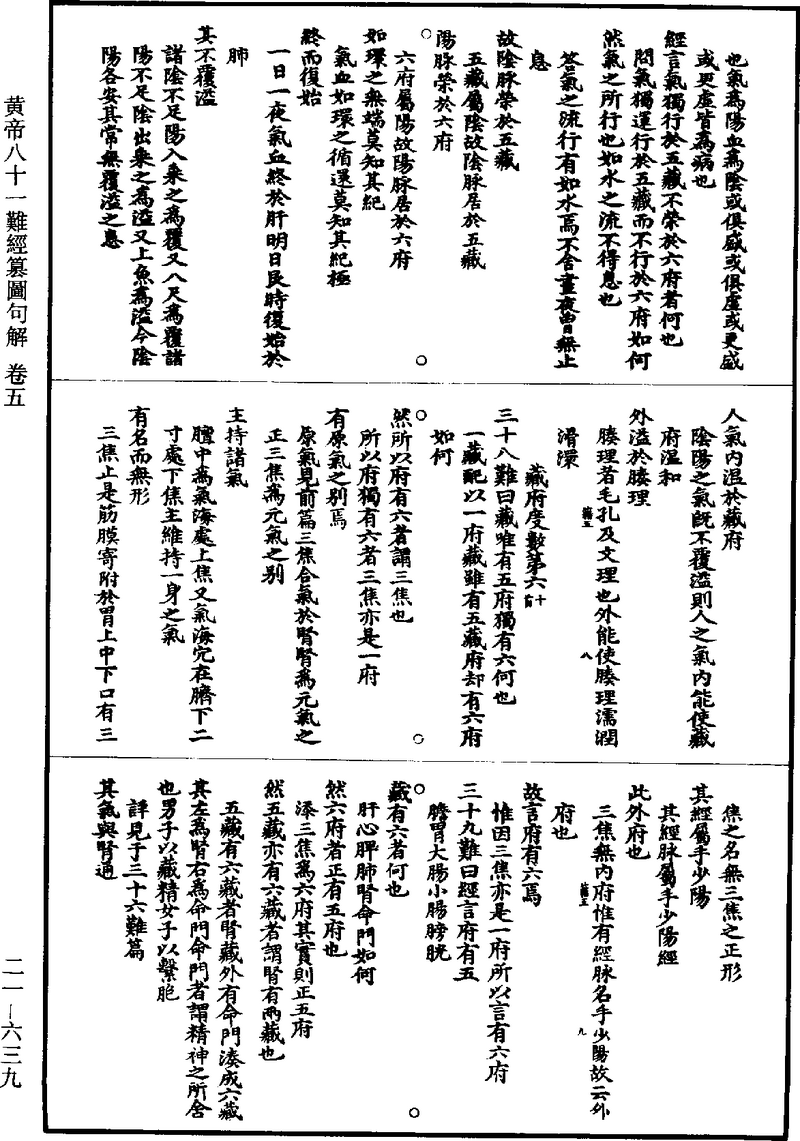 黄帝八十一難經纂圖句解 卷五
二一—六三九
也氣爲陽血爲陰或俱盛或俱虛或更盛
或更虛皆爲病也
經言氣獨行於五藏不榮於六府者何也
問氣獨運行於五藏而不行於六府如何
然氣之所行也如水之流不得息也
答氣之流行有如水焉不舍晝夜曾無止
息
故陰脉榮於五藏
五藏屬陰故陰脉居於五藏
陽脉榮於六府
六府屬陽故陽脉居於六府
如環之無端莫知其紀
氣血如環之循還莫知其紀極
終而復始
一日一夜氣血終於肝明日艮時復始於
肺
其不覆溢
諸陰不足陽入乘之爲覆又入尺爲覆諸
陽不足陰出乘之爲溢又上魚爲溢今陰
陽各安其常無覆溢之患
人氣内温於藏府
陰陽之氣旣不覆溢則人之氣内能使藏
府温和
外溢於腠理
腠理者毛孔及文理也外能使腠理濡潤
滑澤
難五
八
藏府度數第六十首
三十八難曰藏唯有五府獨有六何也
一藏配以一府藏雖有五藏府却有六府
如何
然所以府有六者謂三焦也
所以府獨有六者三焦亦是一府
有原氣之别焉
原氣見前篇三焦合氣於腎腎爲元氣之
正三焦爲元氣之别
主持諸氣
膻中爲氣海處上焦又氣海穴在臍下二
寸處下焦主維持一身之氣
有名而無形
三焦止是筋膜寄附於胃上中下口有三
焦之名無三焦之正形
其經屬手少陽
其經脉屬手少陽經
此外府也
三焦無内府惟有經脉名手少陽故云外
府也
難五
九
故言府有六焉
惟因三焦亦是一府所以言有六府
三十九難曰經言府有五
膽胃大腸小腸膀胱
藏有六者何也
肝心脾肺腎命門如何
然六府者正有五府也
添三焦爲六府其實則正五府
然五藏亦有六藏者謂腎有兩藏也
五藏有六藏者腎藏外有命門湊成六藏
其左爲腎右爲命門命門者謂精神之所舍
也男子以藏精女子以繫胞
詳見于三十六難篇
其氣與腎通